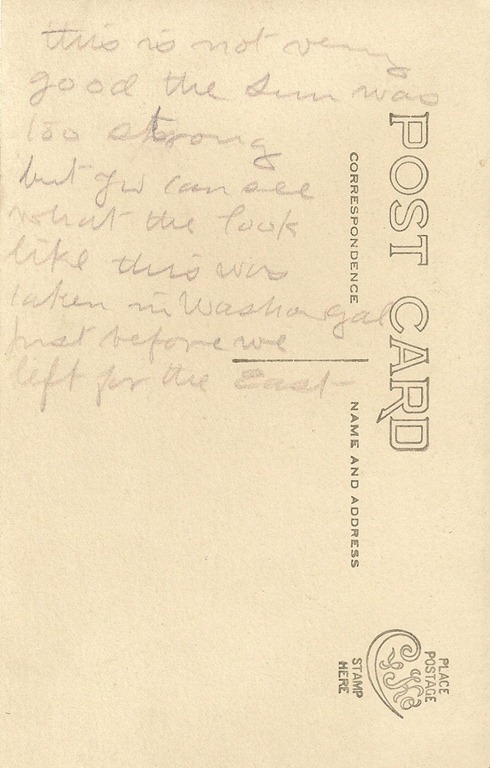 this is not very
good the sun was
too strong
but you can see
what the look
like this was
taken in Washougal
just before we
left for the East
POST CARD
CORRESPONDENCE
NAME AND ADDRESS
PLACE
POSTAGE
STAMP
HERE